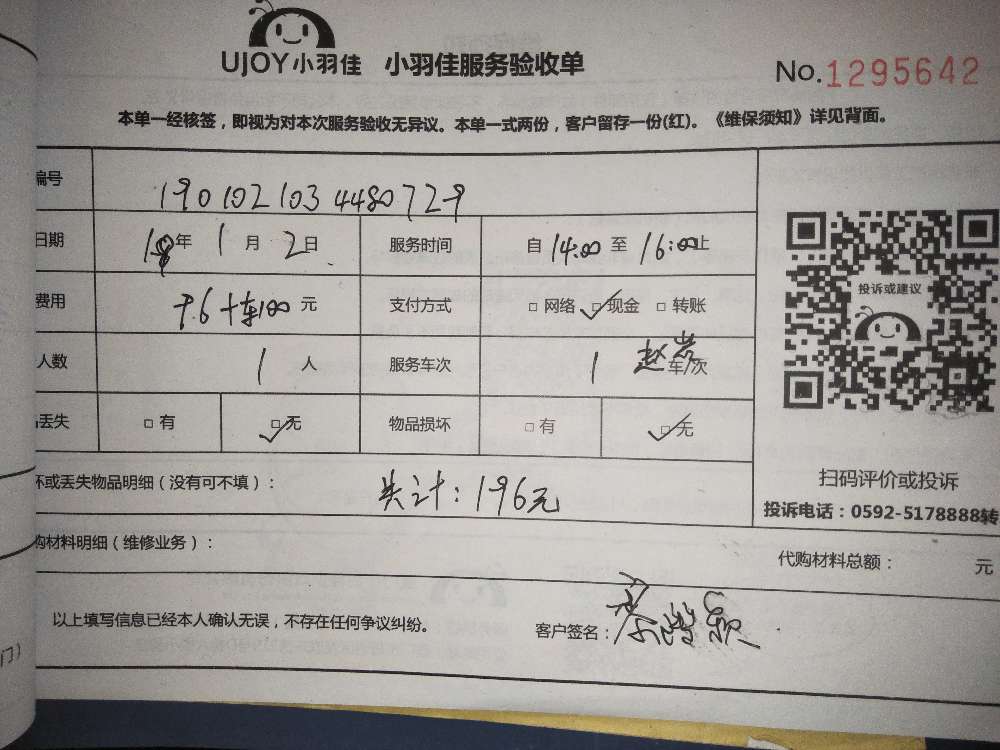 UJOY小羽佳 小羽佳服务验收单
No.1295642
本单一经核签，即视为对本次服务验收无异议。本单一式两份，客户留存一份(红)。《维保须知》详见背面。
编号 1901021034480729
日期 年 1月2日 服务时间 自14:00至16:00止
费用 96+车100元 支付方式 网络 现金 转账
人数 1人 服务车次 1 车/次
丢失 有 无 物品损坏 有 无
投诉或建议
坏或丢失物品明细（没有可不填）： 共计：196元
扫码评价或投诉
投诉电话：0592-5178888转
购材料明细（维修业务）：
代购材料总额： 元
以上填写信息已经本人确认无误，不存在任何争议纠纷。
客户签名：